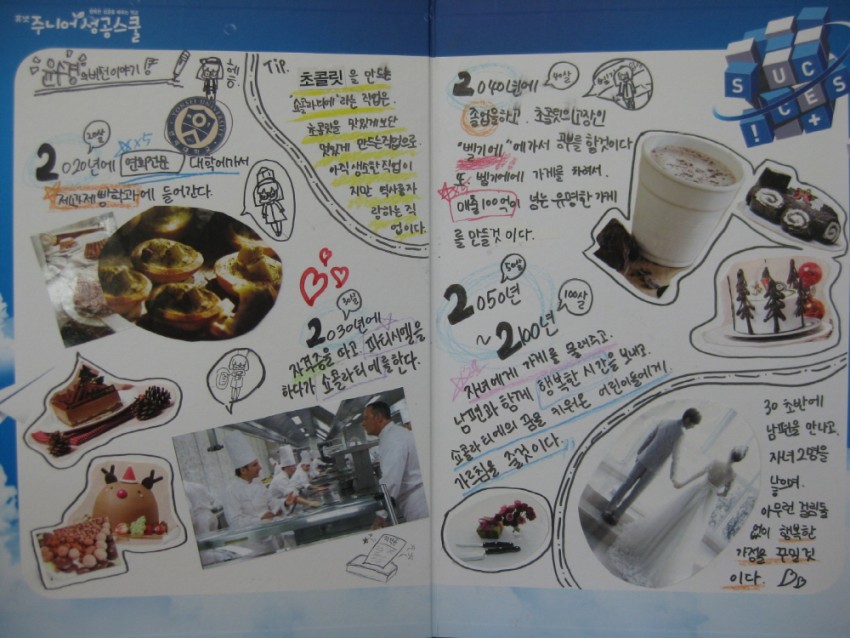 주니어 성공스쿨
윤수경의 비전이야기!
20살
2020년에 영희전문 대학에가서
제과제빵학과에 들어간다.
Tip.
초콜릿을 만드는
"쇼콜라티에"라는 직업은.
초콜릿을 맛있게보단
멋있게 만드는직업으로.
아직 생소한 직업이
지만 역사를자
랑하는 직
업이다.
30살
2030년에
자격증을 따고. 파티시엘을
하다가 쇼콜라티에를한다.
40살
2040년에
졸업을하고. 초콜릿의 고장인
"벨기에"에가서 공부를 할것이다
또 벨기에에 가게를 차려서.
매출100억이 넘는 유명한 가게
를 만들것 이다.
50살
2050년
100살
~2100년
자녀에게 가게를 물어주고.
남편과 함께 행복한 시간을 보내고.
쇼콜라티에의 꿈을 키워온 어린이들에게.
가르침을 줄것이다.
30 초반에
남편을 만나고.
자녀 2명을
낳으며.
아무런 걸림돌
없이 행복한
가정을 꾸밀것
이다.
SUC
CES
!+